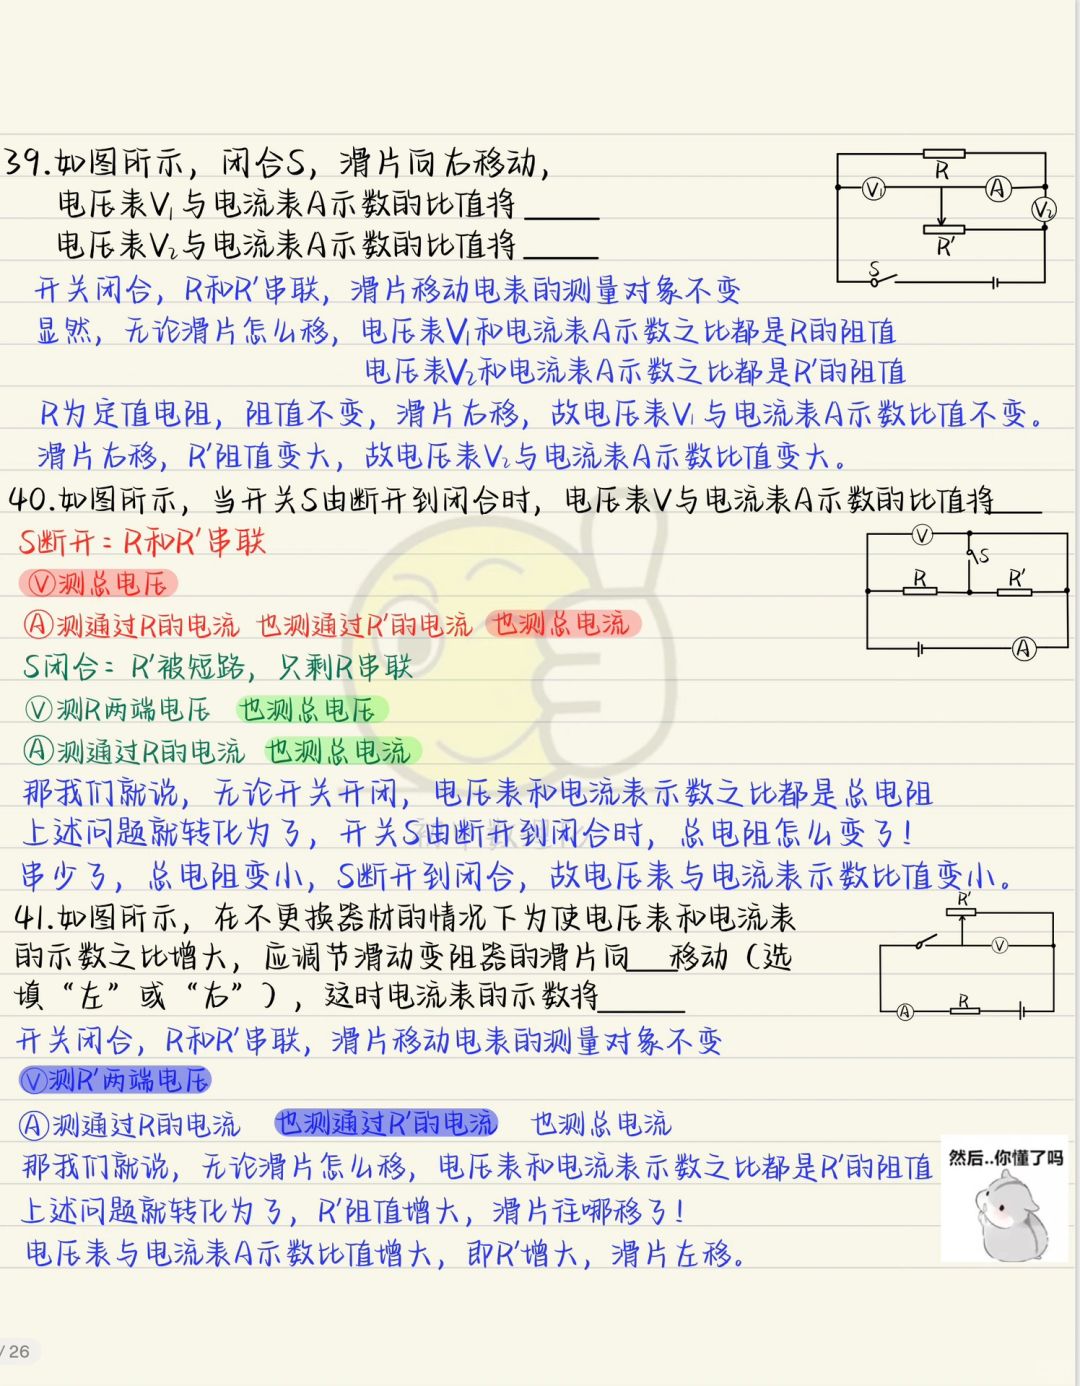 39.如图所示，闭合S，滑片向右移动，
电压表V₁与电流表A示数的比值将______
电压表V₂与电流表A示数的比值将______
R
V₁
A
V₂
R′
S
开关闭合，R和R′串联，滑片移动电表的测量对象不变
显然，无论滑片怎么移，电压表V₁和电流表A示数之比都是R的阻值
电压表V₂和电流表A示数之比都是R′的阻值
R为定值电阻，阻值不变，滑片右移，故电压表V₁与电流表A示数比值不变。
滑片右移，R′阻值变大，故电压表V₂与电流表A示数比值变大。
40.如图所示，当开关S由断开到闭合时，电压表V与电流表A示数的比值将____
S断开：R和R′串联
Ⓥ测总电压
Ⓐ测通过R的电流 也测通过R′的电流 也测总电流
V
S
R
R′
A
S闭合：R′被短路，只剩R串联
Ⓥ测R两端电压 也测总电压
Ⓐ测通过R的电流 也测总电流
那我们就说，无论开关开闭，电压表和电流表示数之比都是总电阻
上述问题就转化为了，开关S由断开到闭合时，总电阻怎么变了！
串少了，总电阻变小，S断开到闭合，故电压表与电流表示数比值变小。
41.如图所示，在不更换器材的情况下为使电压表和电流表
的示数之比增大，应调节滑动变阻器的滑片向___移动（选
填“左”或“右”），这时电流表的示数将______
R′
V
A
R
开关闭合，R和R′串联，滑片移动电表的测量对象不变
Ⓥ测R′两端电压
Ⓐ测通过R的电流 也测通过R′的电流 也测总电流
那我们就说，无论滑片怎么移，电压表和电流表示数之比都是R′的阻值
上述问题就转化为了，R′阻值增大，滑片往哪移了！
电压表与电流表A示数比值增大，即R′增大，滑片左移。
然后..你懂了吗
/ 26